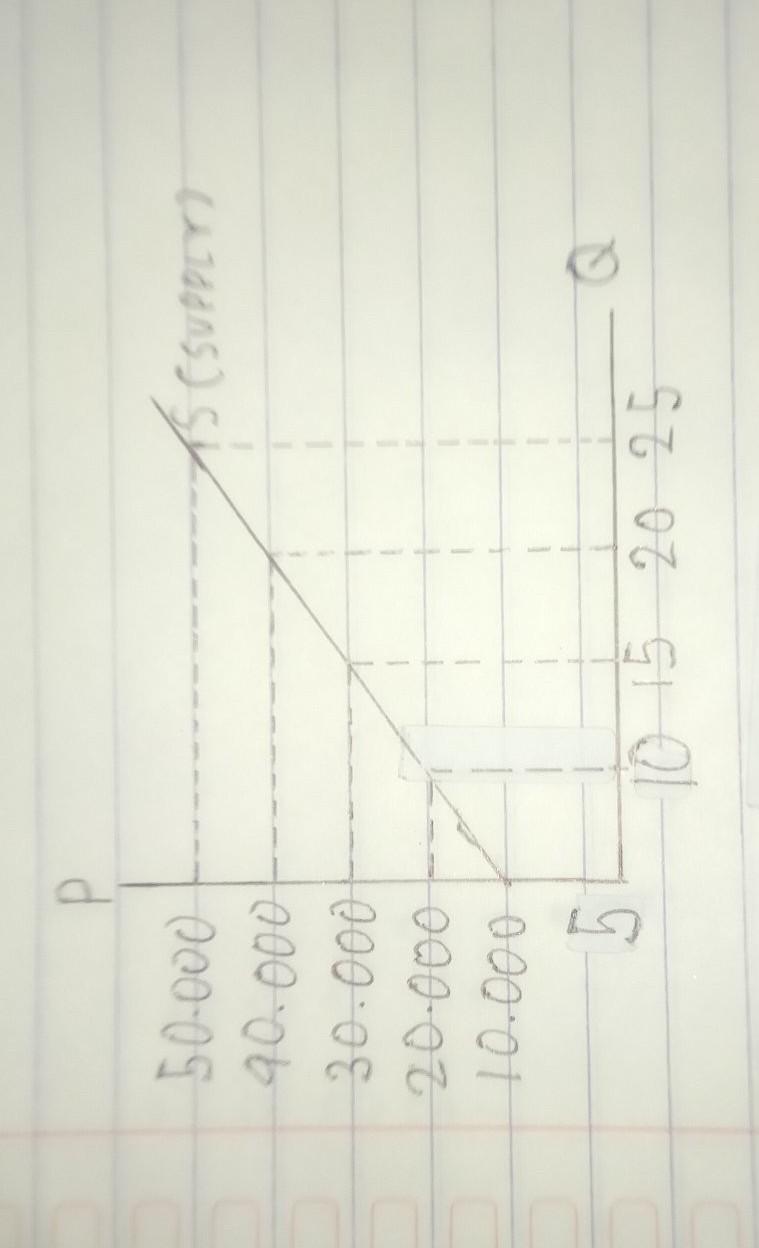 P
50.000
40.000
30.000
20.000
10.000
5
10
15
20
25
Q
S (SUPPLY)